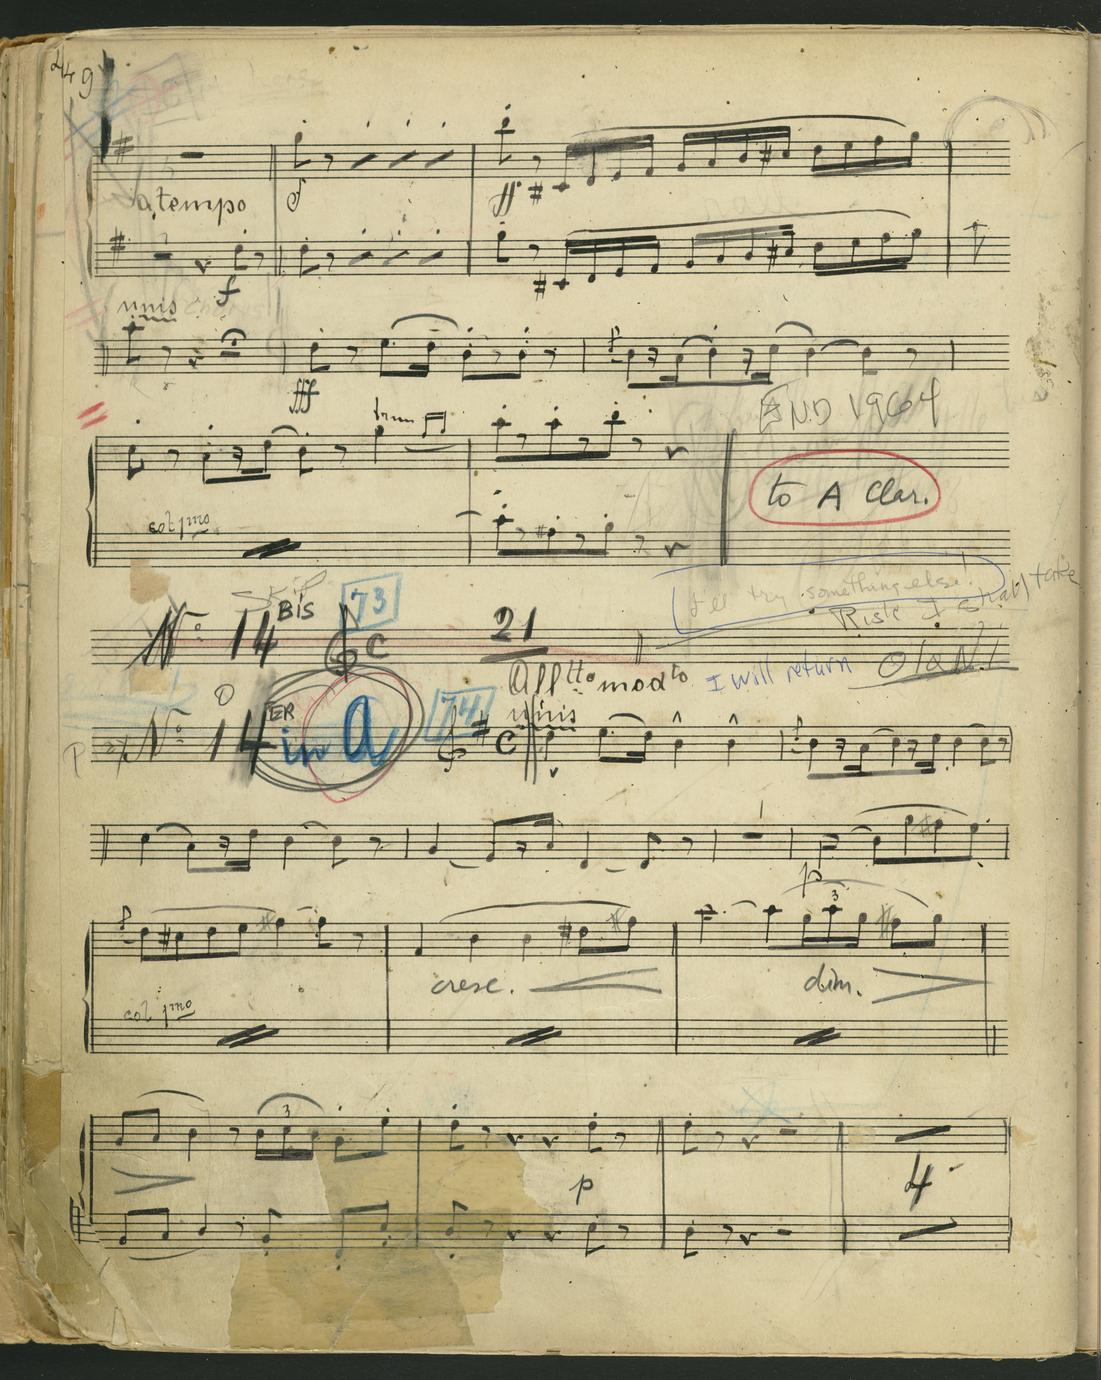 449
a tempo
f
ff
f
unis
fff
END 1964
to A Clar.
col 1mo
I'll try something else!
Risk I shall take
SKIP
Nº 14 BIS 73 C 21
All.tto modto
I will return
Nº 14 TER in A 74 C
unis
p
3
cresc. dim.
col 1mo
3
p
4